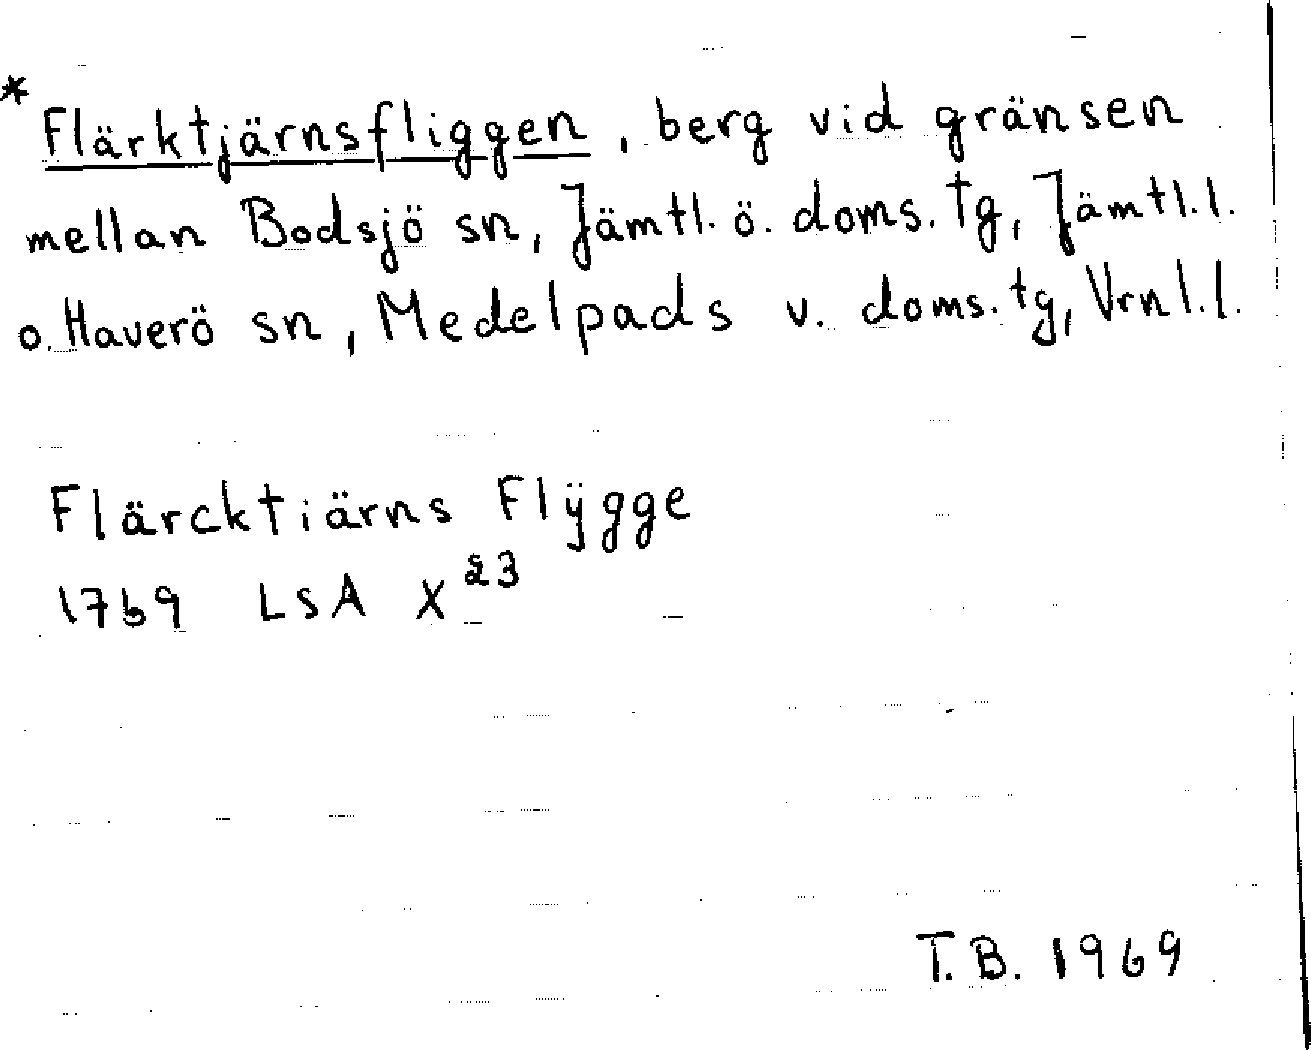 * Flärktjärnsfliggen, berg vid gränsen
mellan Bodsjö sn, Jämtl. ö. doms. tg, Jämtl.l.
o. Haverö sn, Medelpads v. doms. tg, Vrnl.l.
Flärcktiärns Flÿgge
1769 LSA X 23
T.B. 1969